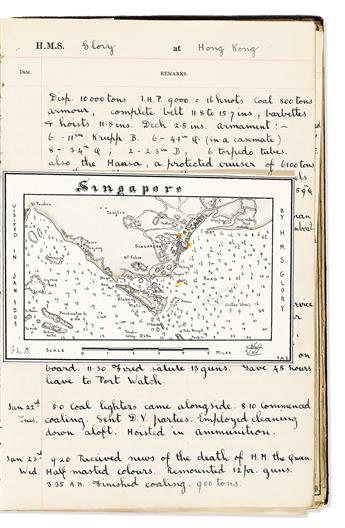 H.M.S. Glory at Hong Kong
Date. REMARKS.
Disp. 10000 tons I.H.P. 9000 = 16 knots Coal 800 tons
armour, complete belt 11.8 to 15.7 ins, barbettes
& hoists 11.8 ins. Deck 2.5 ins. armament :-
6 - 11in Krupp B. 6 - 4.1in Q. (in a casemate)
8 - 3.4in Q ; 2 - 2.3in B ; 6 torpedo tubes.
also the Hansa, a protected cruiser of 6100 tons
Singapore
VISITED IN JAN 1901
BY H.M.S. GLORY
Tanglin
SINGAPORE
Mt Faber
Blakan
ROAD
SCALE
5 MILES
on
board. 11.30 Fired salute 13 guns. Gave 48 hours
leave to Port Watch.
Jan 22nd 8.0 Coal lighters came alongside. 8.10 Commenced
Tues. coaling. Sent D.V. parties. Employed cleaning
down aloft. Hoisted in ammunition.
Jan 23rd 9.20 Received news of the death of H.M. the Queen.
Wed. Half masted colours. Remounted 12pr. guns.
3.35 A.M. Finished coaling. 900 tons.